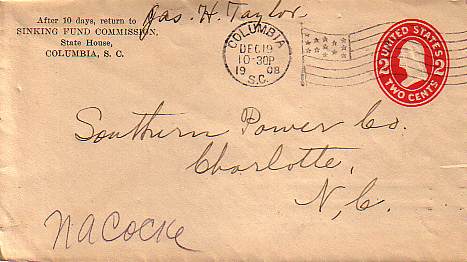 Jas. H. Taylor
After 10 days, return to
SINKING FUND COMMISSION,
State House,
COLUMBIA, S. C.
COLUMBIA
DEC 19
10-30P
1908
S.C.
UNITED STATES
2 2
TWO CENTS
Southern Power Co.
Charlotte,
N.C.
NACocke